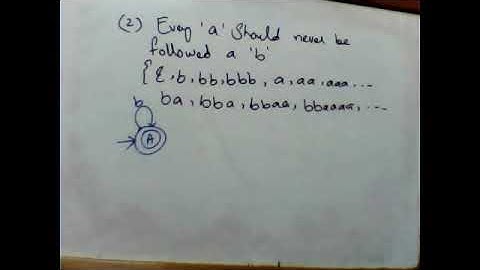 (2) Every 'a' should never be
followed a 'b'
{ε, b, bb, bbb, a, aa, aaa, ...
ba, bba, bbaa, bbaaaa, ...
b
A